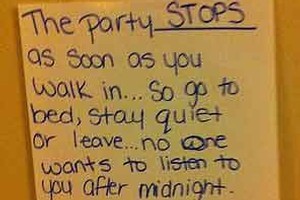 The party STOPS
as soon as you
walk in... So go to
bed, stay quiet
or leave... no one
wants to listen to
you after midnight.